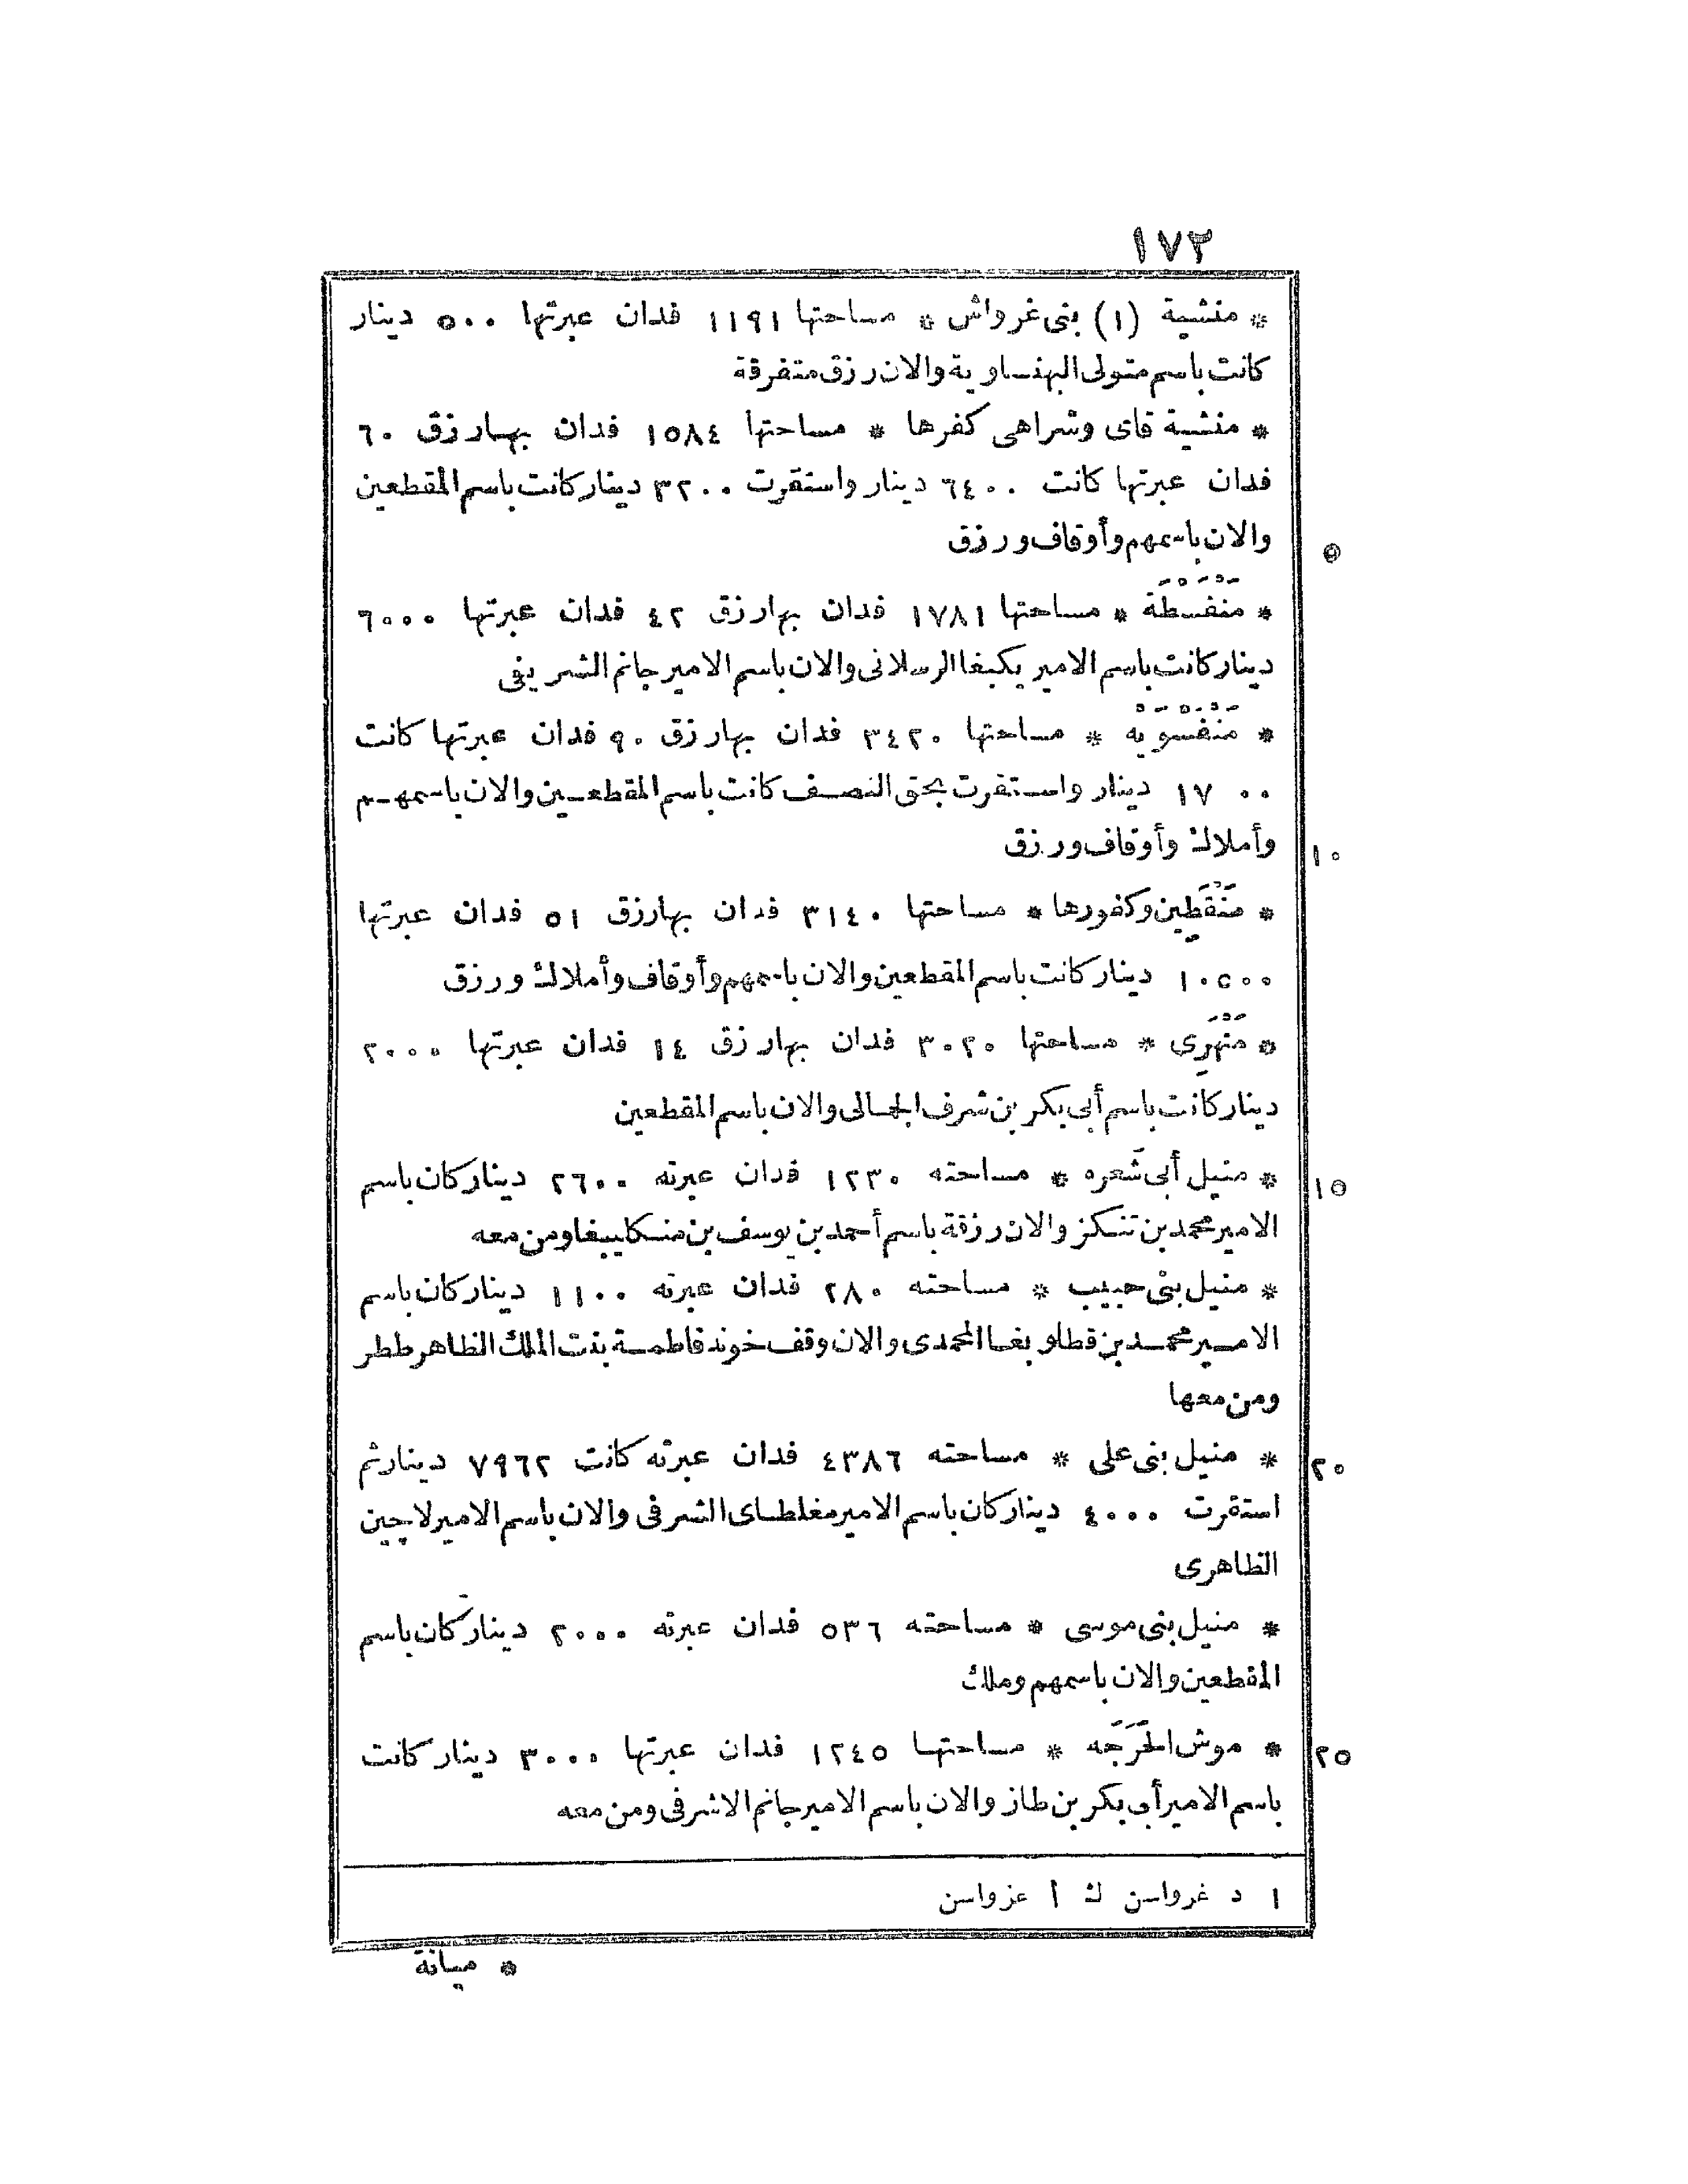 ١٧٢
* منشية (١) بنى غرواش * مساحتها ١١٩١ فدان عبرتها ٥٠٠ دينار
كانت باسم متولى البهنساوية والان رزق متفرقة
* منشية قاى وشراهى كفرها * مساحتها ١٥٨٤ فدان بهارزق ٦٠
فدان عبرتها كانت ٦٤٠٠ دينار واستقرت ٣٢٠٠ دينار كانت باسم المقطعين
والان باسمهم وأوقاف ورزق
٥
* مَنْفَسْطَة * مساحتها ١٧٨١ فدان بهارزق ٤٢ فدان عبرتها ٦٠٠٠
دينار كانت باسم الامير يكبغا الرسلانى والان باسم الامير جانم الشريفى
* مَنْفَسْوَيْه * مساحتها ٣٤٢٠ فدان بهارزق ٩٠ فدان عبرتها كانت
١٧٠٠ دينار واستقرت بحق النصف كانت باسم المقطعين والان باسمهم
وأملاك وأوقاف ورزق
١٠
* مَنْقَطِين وكفورها * مساحتها ٣١٤٠ فدان بهارزق ٥١ فدان عبرتها
١٠٥٠٠ دينار كانت باسم المقطعين والان باسمهم وأوقاف وأملاك ورزق
* مَنْهَرِى * مساحتها ٣٠٢٠ فدان بهارزق ١٤ فدان عبرتها ٢٠٠٠
دينار كانت باسم أبى بكر بن شرف الجمالى والان باسم المقطعين
* منيل أبى شَعره * مساحته ١٢٣٠ فدان عبرته ٢٦٠٠ دينار كان باسم
١٥
الامير محمد بن تنكز والان رزقة باسم أحمد بن يوسف بن منكليبغا ومن معه
* منيل بنى حبيب * مساحته ٢٨٠ فدان عبرته ١١٠٠ دينار كان باسم
الامير محمد بن قطلوبغا المحمدى والان وقف خوند فاطمة بنت الملك الظاهر ططر
ومن معها
* منيل بنى على * مساحته ٤٣٨٦ فدان عبرته كانت ٧٩٦٢ دينار ثم
٢٠
استقرت ٤٠٠٠ دينار كان باسم الامير مغلطاى الشرفى والان باسم الامير لاچين
الظاهرى
* منيل بنى موسى * مساحته ٥٣٦ فدان عبرته ٢٠٠٠ دينار كان باسم
المقطعين والان باسمهم وملك
* موش الحَرَجَه * مساحتها ١٢٤٥ فدان عبرتها ٣٠٠٠ دينار كانت
٢٥
باسم الامير أبى بكر بن طاز والان باسم الامير جانم الاشرفى ومن معه
١ د غرواسن ك أ عزواسن
* ميانة